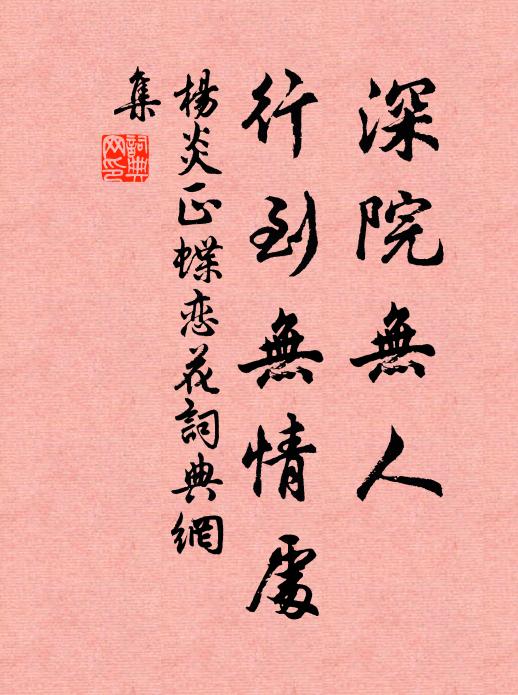 深院無人
行到無情處
楊炎正蝶恋花詞典網
集
詞典
网印